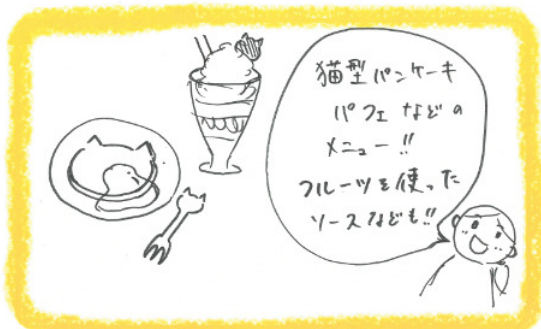 猫型パンケーキ
パフェなどの
メニュー!!
フルーツを使った
ソースなども!!